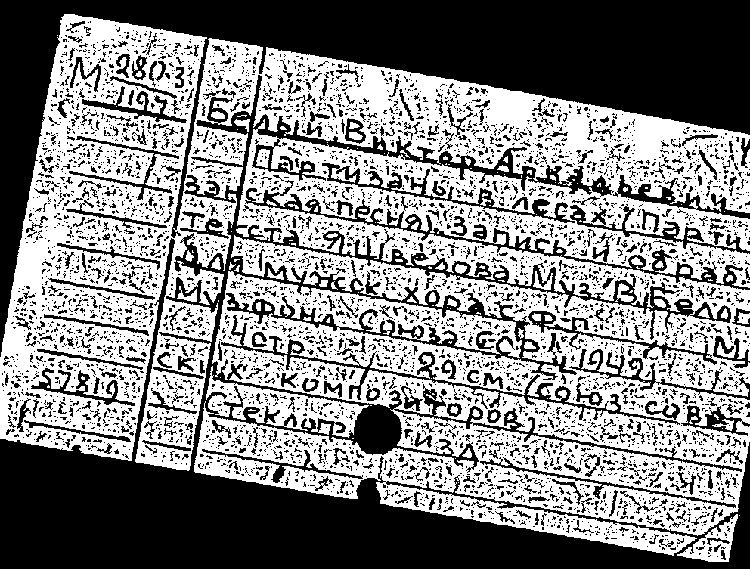 М 280-3
1197
Белый, Виктор Аркадьевич
Партизаны в лесах. (Парти
занская песня). Запись и обраб.
текста Я. Шведова. Муз. В. Белог
Для мужск. хора с ф-п. [М.]
Муз. фонд Союза ССР, 1949.
4 стр. 29 см. (Союз совет
ских композиторов)
57819
Стеклогр. изд.